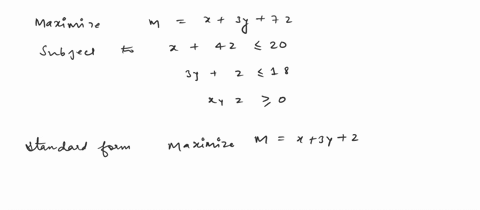 Maximize M = x + 3y + 7z
Subject to x + 4z ≤ 20
3y + z ≤ 18
xyz ≥ 0
Standard form Maximize M = x + 3y + z